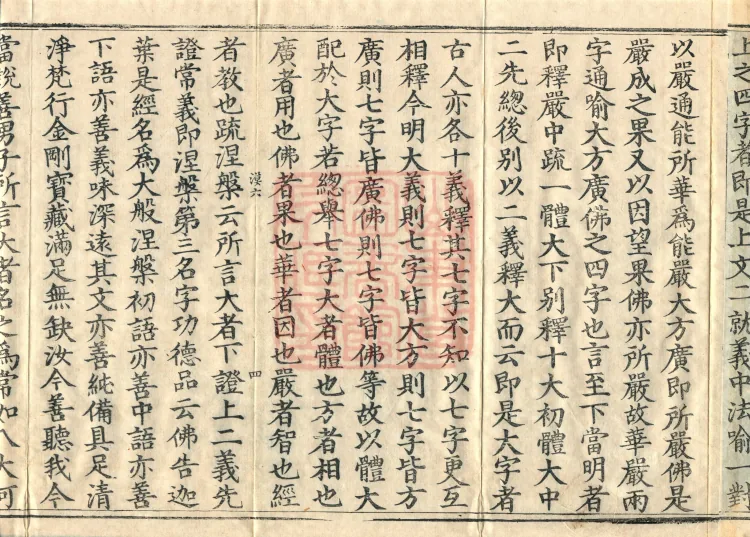 上之四字者即是上文二就義中法喻一對
以嚴通能所華為能嚴大方廣即所嚴佛是
嚴成之果又以因望果佛亦所嚴故華嚴兩
字通喻大方廣佛之四字也言至下當明者
即釋嚴中疏一體大下別釋十大初體大中
二先總後別以二義釋大而云即是大字者
古人亦各十義釋其七字不知以七字更互
相釋今明大義則七字皆大方則七字皆方
廣則七字皆廣佛則七字皆佛等故以體大
配於大字若總舉七字大者體也方者相也
廣者用也佛者果也華者因也嚴者智也經
漠六
四
者教也疏涅槃云所言大者下證上二義先
證常義即涅槃第三名字功德品云佛告迦
葉是經名為大般涅槃初語亦善中語亦善
下語亦善義味深遠其文亦善純備具足清
淨梵行金剛寶藏滿足無缺汝今善聽我今
當說善男子所言大者名之為常如八大河